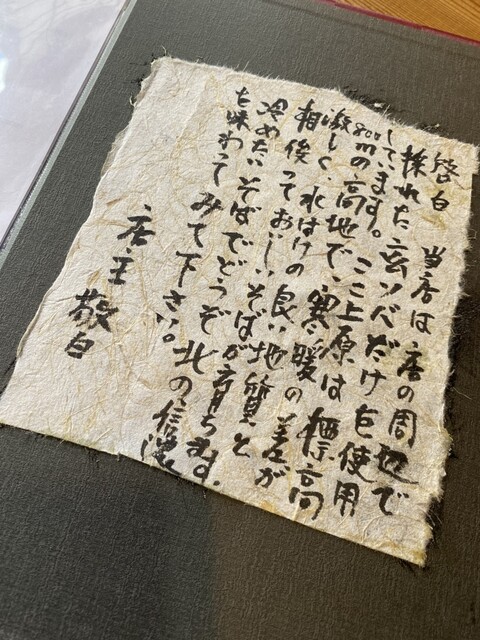 啓白 当店は店の周辺で
採れた玄ソバだけを使用
しています。ここ上原は標高
800mの高地で、寒暖の差が
激しく、水はけの良い地質と
相俊っておいしいそばが育ちます。
冷めたいそばでどうぞ北の信濃
を味わってみて下さい。
店主 敬白